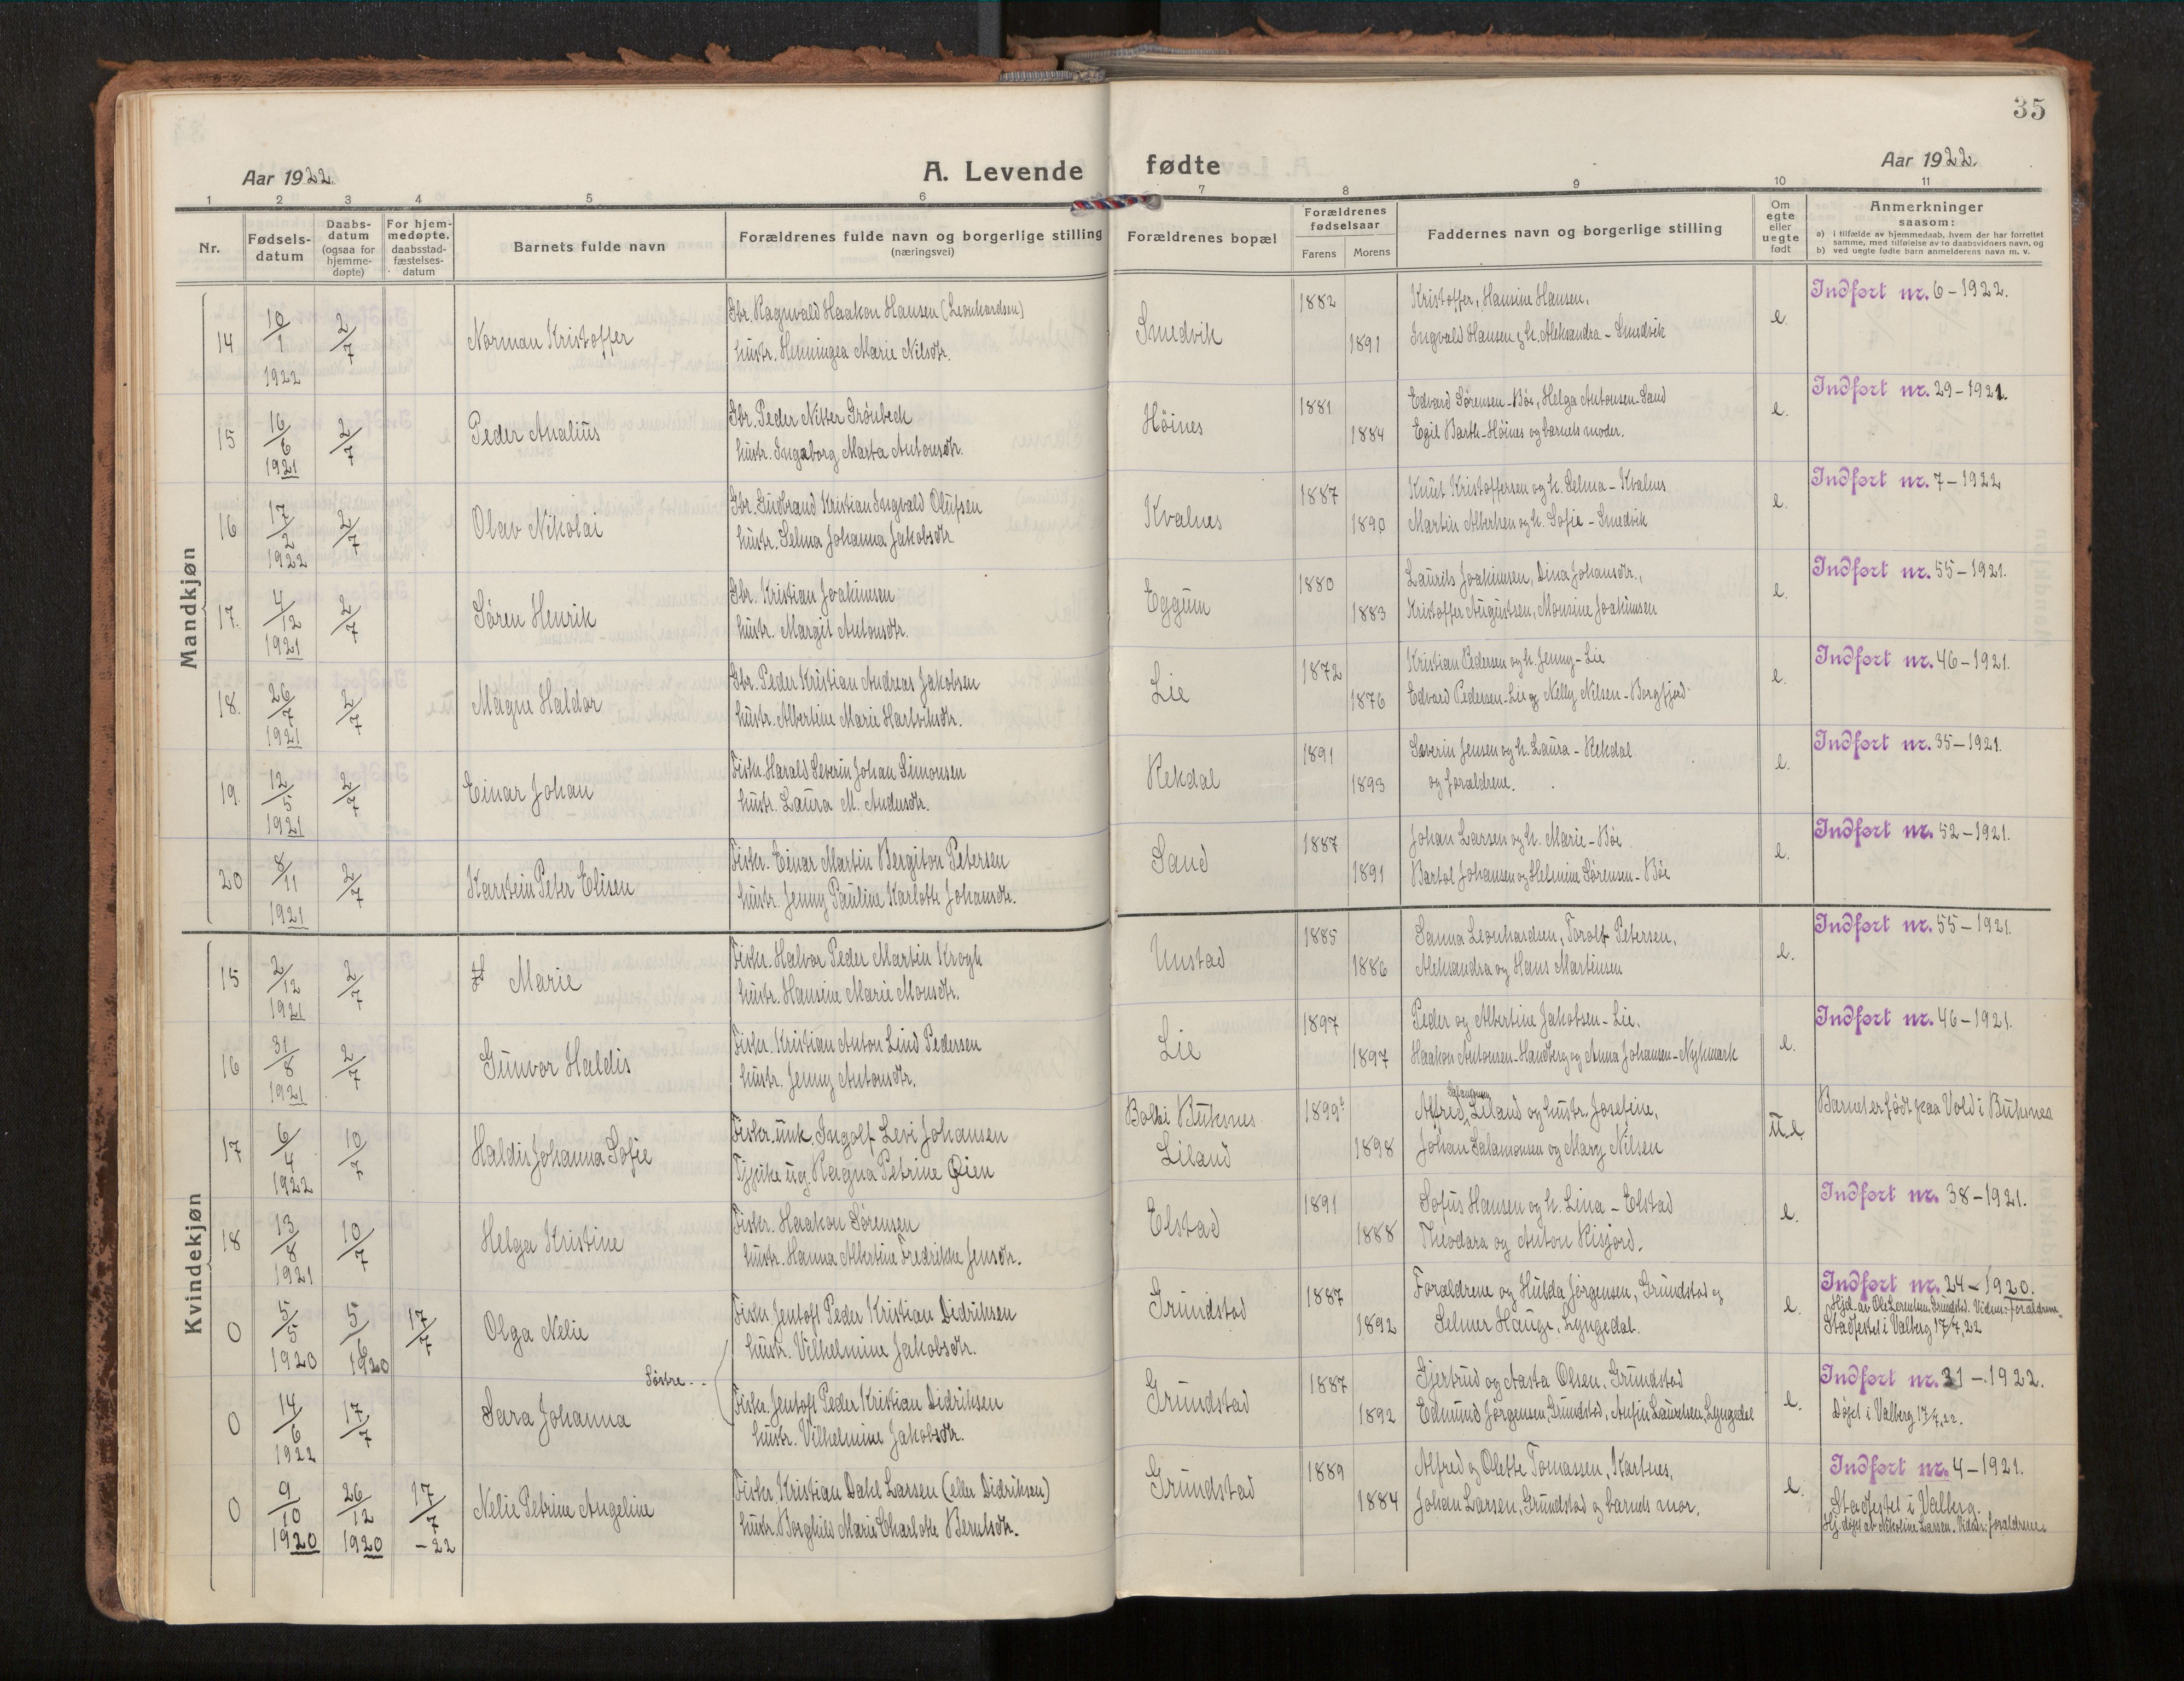 35
Aar 1922.
A. Levende
fødte
Aar 1922.
1 2 3 4 5 6 7 8 9 10 11
Nr.
Fødsels-
datum
Daabs-
datum
(ogsaa for
hjemme-
døpte)
For hjem-
medøpte,
daabsstad-
fæstelses-
datum
Barnets fulde navn
Forældrenes fulde navn og borgerlige stilling
(næringsvei)
Forældrenes bopæl
Forældrenes
fødselsaar
Farens
Morens
Faddernes navn og borgerlige stilling
Om
egte
eller
uegte
født
Anmerkninger
saasom:
a) i tilfælde av hjemmedaab, hvem der har forrettet
samme, med tilføielse av to daabsvidners navn, og
b) ved uegte fødte barn anmelderens navn m. v.
Mandkjøn
14 10/1 1922 2/7 Norman Kristoffer
Gbr. Ragnvald Haakon Hansen (Leonhardsen)
hustr. Henningea Marie Nilsdtr.
Smedvik 1882 1891
Kristoffer, Hansine Hansen,
Ingvald Hansen og h. Aleksandra - Smedvik
e. Indført nr. 6-1922.
15 16/6 1921 2/7 Peder Analius
Gbr. Peder Nitter Grönbech
hustr. Ingeborg Marta Antonsdtr.
Höines 1881 1884
Edvard Sørensen - Böe, Helga Antonsen - Sand
Egil Barth - Höines og barnets moder.
e. Indført nr. 29-1921.
16 17/2 1922 2/7 Olav Nikolai
Gbr. Gudbrand Kristian Ingvald Olufsen
hustr. Selma Johanna Jakobsdtr.
Kvalnes 1887 1890
Knut Kristoffersen og h. Selma - Kvalnes
Martin Albertsen og h. Sofie - Smedvik
e. Indført nr. 7-1922
17. 4/12 1921 2/7 Søren Henrik
Gbr. Kristian Joakimsen
hustr. Margit Antonsdtr.
Eggum 1880 1883
Laurits Joakimsen, Dina Johansdtr.,
Kristoffer Augustsen, Monsine Joakimsen
e. Indført nr. 55-1921.
18. 26/7 1921 2/7 Magne Haldor
Gbr. Peder Kristian Andreas Jakobsen
hustr. Albertine Marie Hartviksdtr.
Lie 1872 1876
Kristian Pedersen og h. Jenny - Lie
Edvard Pedersen - Lie og Nelly Nilsen - Borgfjord
e. Indført nr. 46-1921.
19. 12/5 1921 2/7 Einar Johan
Fisker. Harald Severin Johan Simonsen
hustr. Laura M. Andersdtr.
Rekdal 1891 1893
Severin Jensen og h. Laura - Rekdal
og foraldrene.
e. Indført nr. 35-1921.
20 8/11 1921 2/7 Karstein Peter Elisen
Fisker. Einar Martin Bergiton Petersen
hustr. Jenny Pauline Karlotte Johansdtr.
Sand 1887 1891
Johan Larsen og h. Marie - Böe
Bartol Johansen og Helmine Sørensen - Böe
e. Indført nr. 52-1921.
Kvindekjøn
15 2/12 1921 2/7 Marie
Fisker. Halvor Peder Martin Krogh
hustr. Hansine Marie Monsdtr.
Unstad 1885 1886
Sanna Leonhardsen, Torolf Petersen,
Aleksandra og Hans Martinsen
e. Indført nr. 55-1921.
16 31/8 1921 2/7 Gunvor Haldis
Fisker. Kristian Anton Lind Pedersen
hustr. Jenny Antonsdtr.
Lie 1897 1897
Peder og Albertine Jakobsen - Lie.
Haakon Antonsen - Handberg og Anna Johansen - Nykmark
e. Indført nr. 46-1921.
17 6/4 1922 10/7 Haldis Johanna Sofie
Fisker. unk. Ingolf Levi Johansen
Tjpike ug. Ragna Petrine Øien
Buksnes
Liland 1899 1898
Salamonsen
Alfred Liland og hustr. Josefine,
Johan Salamonsen og Mary Nilsen
u.e. Barnet er født paa Vold i Buksnes
18 13/8 1921 10/7 Helga Kristine
Fisker. Haakon Sørensen
hustr. Hanna Albertine Fredrikke Jensdtr.
Elstad 1891 1888
Sofus Hansen og h. Lina - Elstad
Theodara og Anton Risjord.
e. Indført nr. 38-1921.
0 5/5 1920 5/6 1920 17/7 Olga Nelie
Fisker. Jentoft Peder Kristian Didriksen
hustr. Vilhelmine Jakobsdtr.
Grundstad 1887 1892
Foraldrene og Hulda Jørgensen, Grundstad og
Selmer Hauge, Lyngedal.
e. Indført nr. 24-1920.
Hjd. av Ole Lorentsen, Grundstad. Vidner: foraldrene.
Stadfestet i Valberg 17/7,22
Søstre..
0 14/6 1922 17/7 Sara Johanna
Fisker. Jentoft Peder Kristian Didriksen
hustr. Vilhelmine Jakobsdtr.
Grundstad 1887 1892
Gjertrud og Aasta Olsen, Grundstad
Edmund Jørgensen, Grundstad, Anfin Lauritsen, Lyngedal
e. Indført nr. 31-1922.
Døpt i Valberg 17/7,22.
0 9/10 1920 26/12 1920 17/7 -22 Nelie Petrine Angeline
Fisker. Kristian Dahl Larsen (eller Didriksen)
hustr. Borghild Marie Charlotte Berntsdtr.
Grundstad 1889 1884
Alfred og Olette Tomassen, Kartnes,
Johan Larsen, Grundstad og barnets mor.
e. Indført nr. 4-1921.
Stadfestet i Valberg.
Hj.døpt av Nikoline Larsen. Vidner: foraldrene